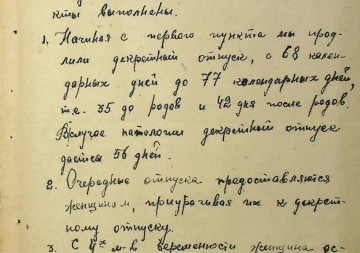 кты выполнены.
1. Начиная с первого пункта мы прод-
лили декретный отпуск, с 63 кален-
дарных дней до 77 календарных дней,
т.е. 35 до родов и 42 дня после родов.
В случае патологии декретный отпуск
дается 56 дней.
2. Очередные отпуска предоставляются
женщинам, приурочивая их к декрет-
ному отпуску.
3. С 4х м-в беременности женщина ос-